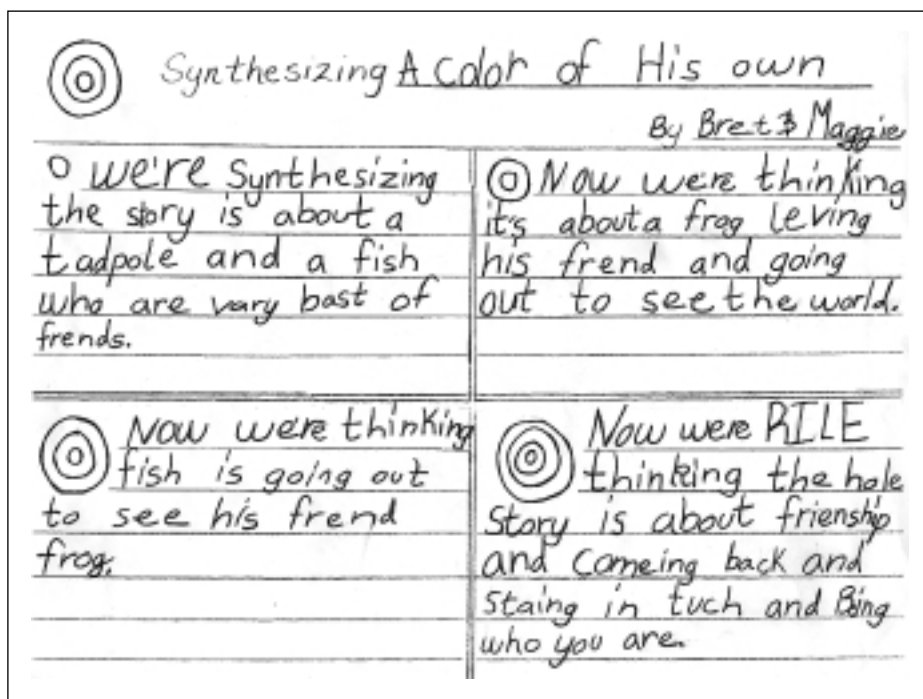 Synthesizing A Color of His own
By Bret & Maggie
we're Synthesizing
the story is about a
tadpole and a fish
who are vary bast of
frends.
Now were thinking
it's about a frog leving
his frend and going
out to see the world.
Now were thinking
fish is going out
to see his frend
frog.
Now were RILE
thinking the hole
Story is about frienship
and Comeing back and
Staing in tuch and Bing
who you are.